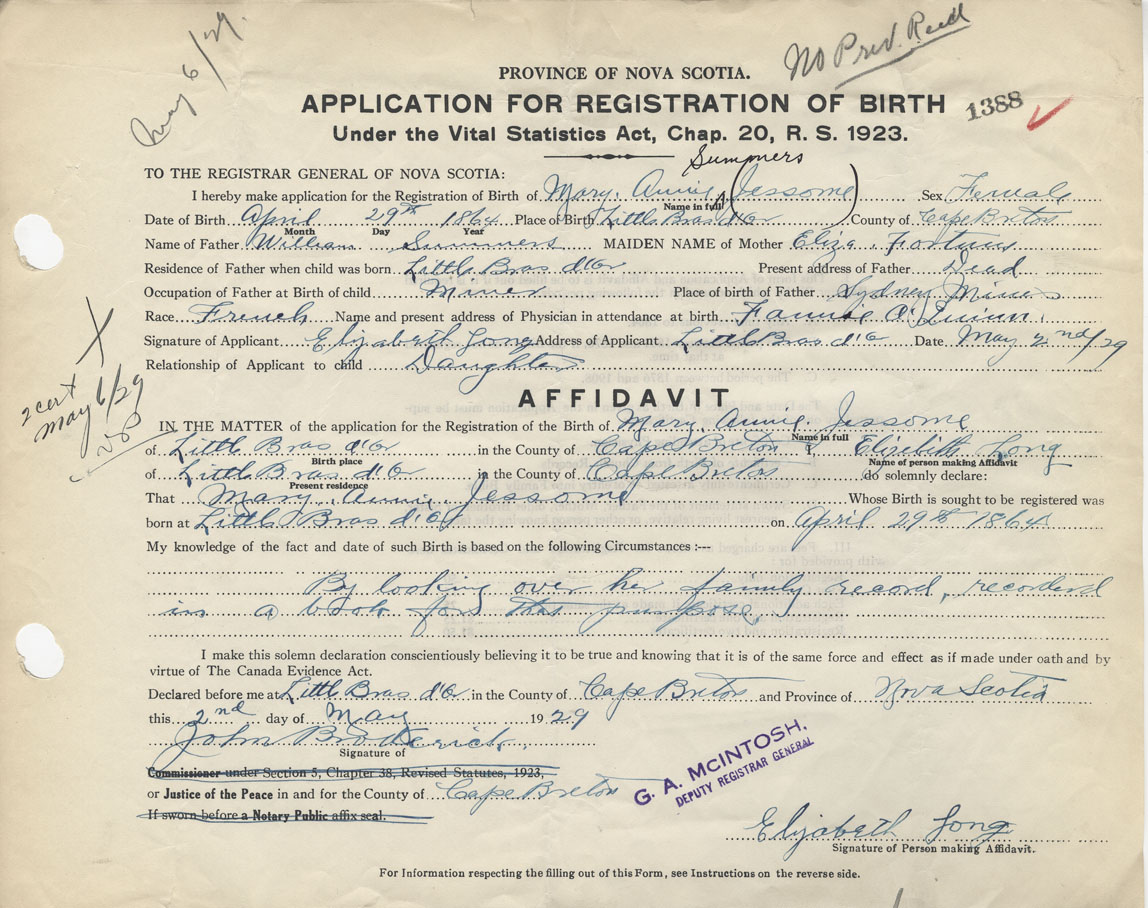 May 6/29.
No Prev. Recd
PROVINCE OF NOVA SCOTIA.
APPLICATION FOR REGISTRATION OF BIRTH
1388
Under the Vital Statistics Act, Chap. 20, R. S. 1923.
Summers
TO THE REGISTRAR GENERAL OF NOVA SCOTIA:
I hereby make application for the Registration of Birth of Mary. Annie (Jessome) Sex Female
Name in full
Date of Birth April 29th 1864 Place of Birth Little Bras d'Or County of Cape Breton
Month Day Year
Name of Father William Summers MAIDEN NAME of Mother Eliza. Fortune
Residence of Father when child was born Little Bras d'Or Present address of Father Dead
Occupation of Father at Birth of child Miner Place of birth of Father Sydney Mines
Race French Name and present address of Physician in attendance at birth
Signature of Applicant Elizabeth Long Address of Applicant Little Bras d'Or Date May 2nd/29
Relationship of Applicant to child Daughter
2 cert
May 6/29
AFFIDAVIT
IN THE MATTER of the application for the Registration of the Birth of Mary. Annie. Jessome
Name in full
of Little Bras d'Or in the County of Cape Breton I, Elizibeth Long
Birth place Name of person making Affidavit
of Little Bras d'Or in the County of Cape Breton do solemnly declare:
Present residence
That Mary. Annie. Jessome Whose Birth is sought to be registered was
born at Little Bras d'Or on April 29th 1864
My knowledge of the fact and date of such Birth is based on the following Circumstances :---
By looking over her family record, recorderd
in a book for that purpose.
I make this solemn declaration conscientiously believing it to be true and knowing that it is of the same force and effect as if made under oath and by
virtue of The Canada Evidence Act.
Declared before me at Little Bras d'Or in the County of Cape Breton and Province of Nova Scotia
this 2nd day of May 1929
John Broderick.
Signature of
Commissioner under Section 5, Chapter 38, Revised Statutes, 1923,
or Justice of the Peace in and for the County of Cape Breton
If sworn before a Notary Public affix seal.
G. A. MCINTOSH,
DEPUTY REGISTRAR GENERAL
Elizabeth Long
Signature of Person making Affidavit.
For Information respecting the filling out of this Form, see Instructions on the reverse side.